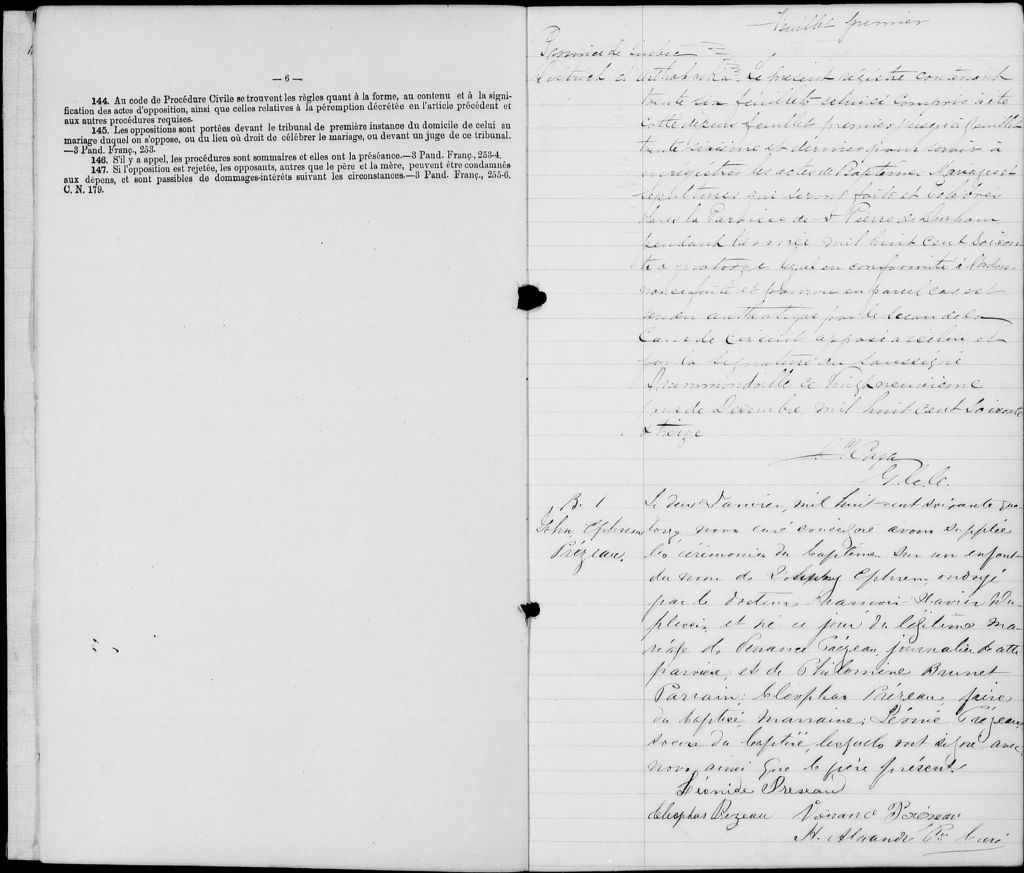 — 6 —
144. Au code de Procédure Civile se trouvent les règles quant à la forme, au contenu et à la signi-
fication des actes d'opposition, ainsi que celles relatives à la péremption décrétée en l'article précédent et
aux autres procédures requises.
145. Les oppositions sont portées devant le tribunal de première instance du domicile de celui au
mariage duquel on s'oppose, ou du lieu où droit de célébrer le mariage, ou devant un juge de ce tribunal.
—3 Pand. Franç., 253.
146. S'il y a appel, les procédures sont sommaires et elles ont la préséance.—3 Pand. Franç., 253-4.
147. Si l'opposition est rejetée, les opposants, autres que le père et la mère, peuvent être condamnés
aux dépens, et sont passibles de dommages-intérêts suivant les circonstances.—3 Pand. Franç., 255-6.
C. N. 179.
Feuillet premier
Province de Quebec
District d'Arthabaska. Le présent régistre contenant
trente six feuillets celui ci compris a été
cotté depuis feuillet premier jusqu'à feuillet
trente sixième et dernier pour servir à
enregistrer les actes de Baptêmes Mariages et
Sépultures qui seront faits et célébrés
dans la Paroisse de St Pierre de Durham
pendant l'année mil huit cent soixan
te quatorze en conformité à l'ordon
nance faite et pourvue en pareil cas est
rendu authentique par le Sceau de la
Cour de Circuit apposé à icelui et
par la signature du soussigné
Drummondville ce Vingt neuvième
jour de Decembre mil huit cent soixante
& treize
G.C.C.
B. 1
John Ephrem
Prézeau.
Le deux Janvier, mil huit cent soixante qua
torze nous curé soussigné avons supplée
les cérémonies du baptême sur un enfant
du nom de Ephrem, ondoyé
par le docteur François Xavier Du
plessis, et né ce jour du légitime ma-
riage de Venance Prézeau, journalier de cette
paroisse, et de Philomène Brunet
Parrain: Cléophas Prézeau, frère
du baptisé, marraine; Léonie Prézeau
soeur du baptisé, lesquels ont signé avec
nous, ainsi que le père présent.
Léonide Preseau
Cleophas Prezeau Venanc Prézeau
H. Alexandre Ptre Curé